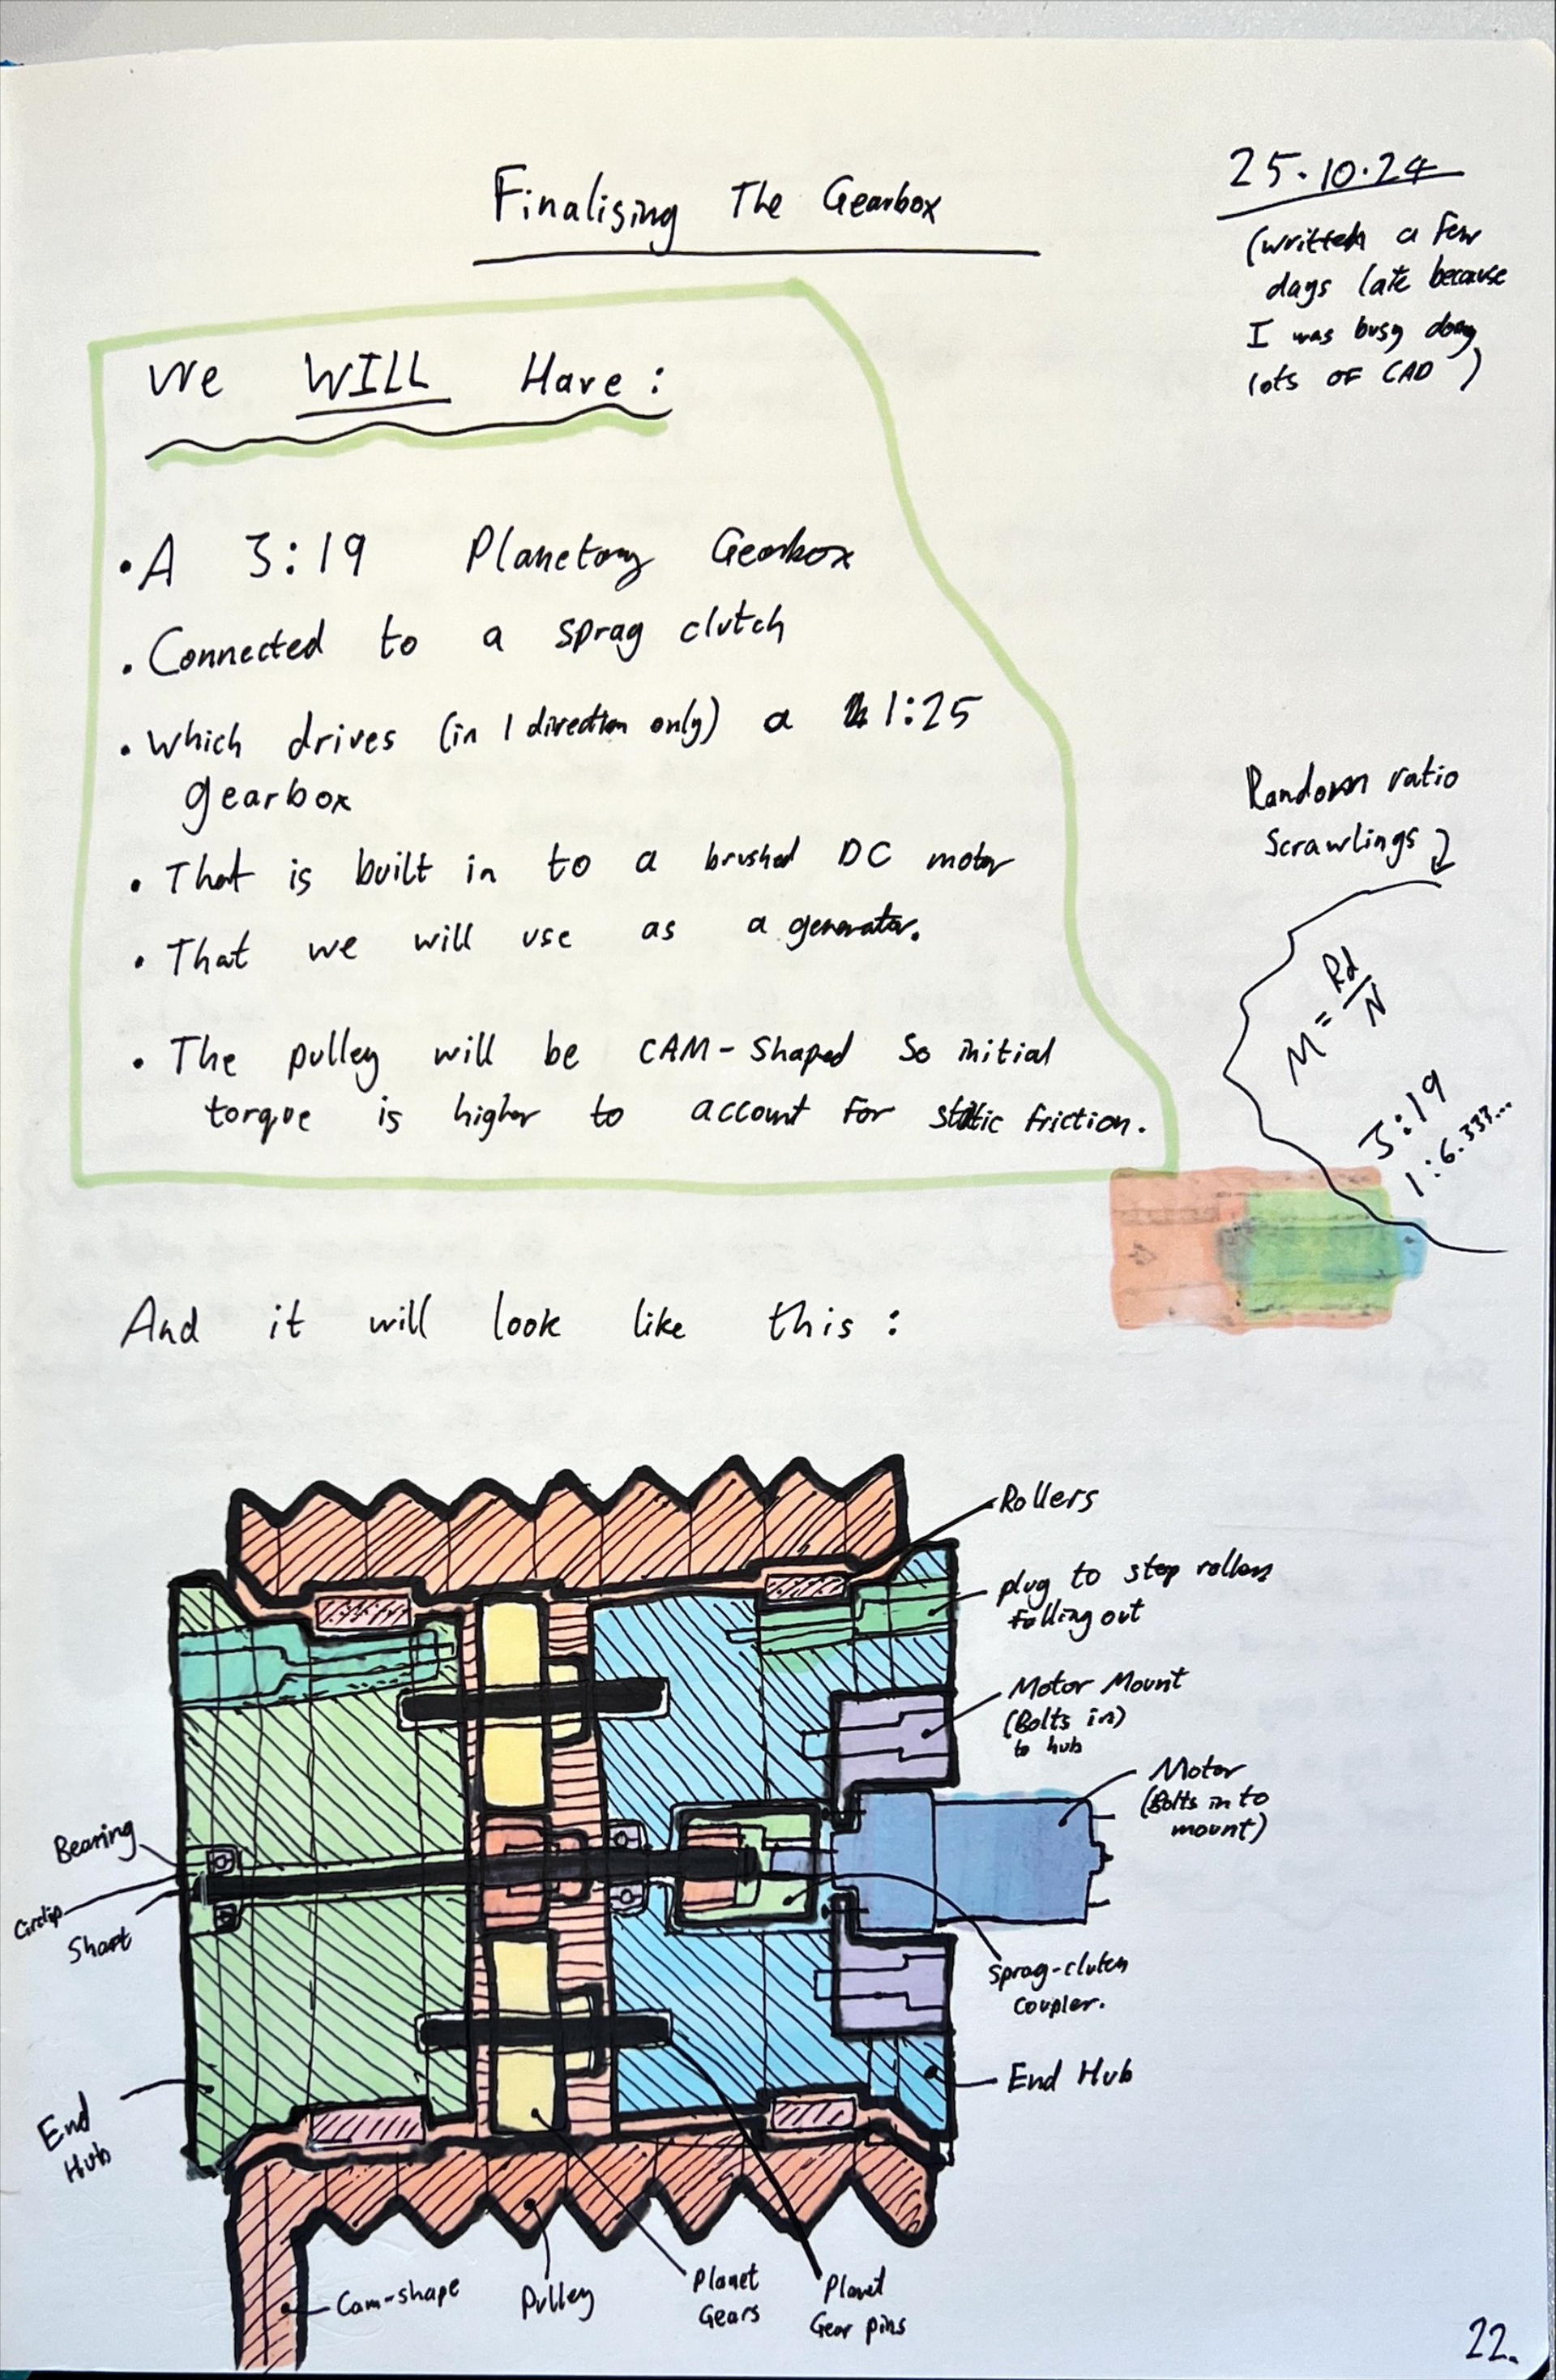 Finalising The Gearbox
25.10.24
(written a few
days late because
I was busy doing
lots of CAD )
We WILL Have:
• A 3:19 Planetary Gearbox
• Connected to a sprag clutch
• Which drives (in 1 direction only) a 1:25
gearbox
• That is built in to a brushed DC motor
• That we will use as a generator.
• The pulley will be CAM-Shaped so initial
torque is higher to account for static friction.
Random ratio
scrawlings
M = Rd/N
3:19
1:6.333...
And it will look like this:
Rollers
plug to stop rollers
falling out
Motor Mount
(Bolts in)
to hub
Motor
(Bolts in to
mount)
Bearing
Circlip
Shaft
Sprag-clutch
coupler.
End Hub
End
Hub
Cam-shape
Pulley
Planet
Gears
Planet
Gear pins
22.